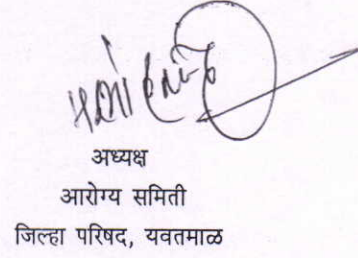 अध्यक्ष
आरोग्य समिती
जिल्हा परिषद, यवतमाळ